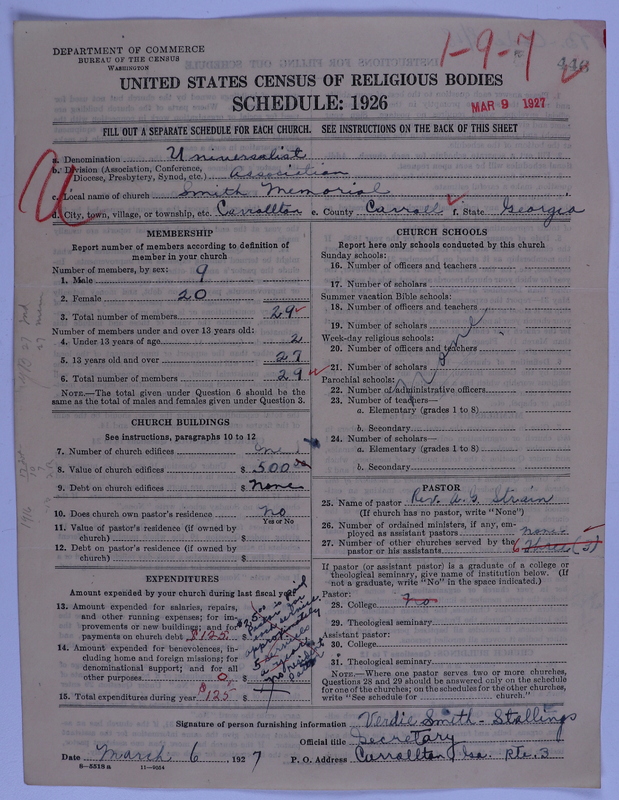 DEPARTMENT OF COMMERCE
BUREAU OF THE CENSUS
WASHINGTON
1-9-7
446
UNITED STATES CENSUS OF RELIGIOUS BODIES
SCHEDULE: 1926
MAR 9 1927
FILL OUT A SEPARATE SCHEDULE FOR EACH CHURCH. SEE INSTRUCTIONS ON THE BACK OF THIS SHEET
a. Denomination Universalist
b. Division (Association, Conference, Diocese, Presbytery, Synod, etc.) Association
c. Local name of church Smith Memorial
d. City, town, village, or township, etc. Carrollton e. County Carroll f. State Georgia
MEMBERSHIP
Report number of members according to definition of
member in your church
Number of members, by sex:
1. Male 9
2. Female 20
3. Total number of members 29
Number of members under and over 13 years old:
4. Under 13 years of age 2
5. 13 years old and over 27
6. Total number of members 29
NOTE.—The total given under Question 6 should be
same as the total of males and females given under Question 3.
CHURCH BUILDINGS
See instructions, paragraphs 10 to 12
7. Number of church edifices one
8. Value of church edifices $ 500.00
9. Debt on church edifices $ None
10. Does church own pastor's residence No
Yes or No
11. Value of pastor's residence (if owned by
church) $
12. Debt on pastor's residence (if owned by
church) $
EXPENDITURES
Amount expended by your church during last fiscal year
13. Amount expended for salaries, repairs,
and other running expenses; for im-
provements or new buildings; and for
payments on church debt $125
14. Amount expended for benevolences, in-
cluding home and foreign missions; for
denominational support; and for all
other purposes 0 $
15. Total expenditures during year $125 $
$25.00 is paid
Pastor for
each service.
approximately
5 services
a year
no resident
Pastor
CHURCH SCHOOLS
Report here only schools conducted by this church
Sunday schools:
16. Number of officers and teachers
17. Number of scholars
Summer vacation Bible schools:
18. Number of officers and teachers
19. Number of scholars
Week-day religious schools:
20. Number of officers and teachers
21. Number of scholars
Parochial schools:
22. Number of administrative officers
23. Number of teachers—
a. Elementary (grades 1 to 8)
b. Secondary
24. Number of scholars—
a. Elementary (grades 1 to 8)
b. Secondary
None
PASTOR
25. Name of pastor Rev. W. G. Strain
(If church has no pastor, write "None")
26. Number of ordained ministers, if any, em-
ployed as assistant pastors None
27. Number of other churches served by the
pastor or his assistants 6 three (5)
If pastor (or assistant pastor) is a graduate of a college or
theological seminary, give name of institution below. (If
not a graduate, write "No" in the space indicated.)
Pastor:
28. College No
29. Theological seminary
Assistant pastor:
30. College
31. Theological seminary
NOTE.—Where one pastor serves two or more churches,
Questions 28 and 29 should be answered only on the schedule
for one of the churches; on the schedules for the other churches,
write "See schedule for church."
Signature of person furnishing information Verdie Smith-Stallings
Official title Secretary
Date March 6 1927 P. O. Address Carrollton, Ga. Rte. 3
8—5518 a 11—9564